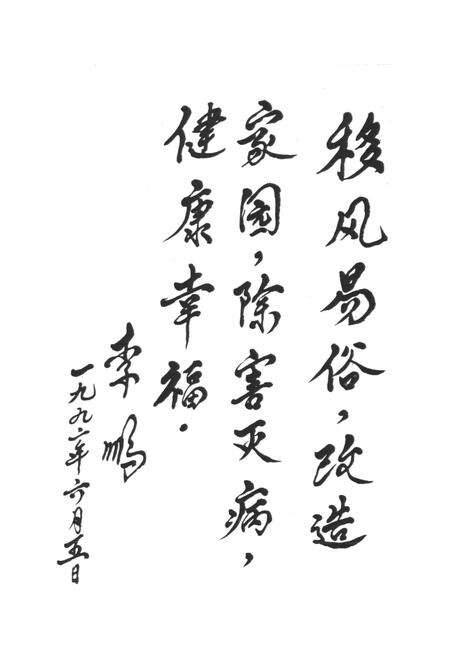 移风易俗，改造
家国，除害灭病，
健康幸福．
李鹏
一九九二年六月五日